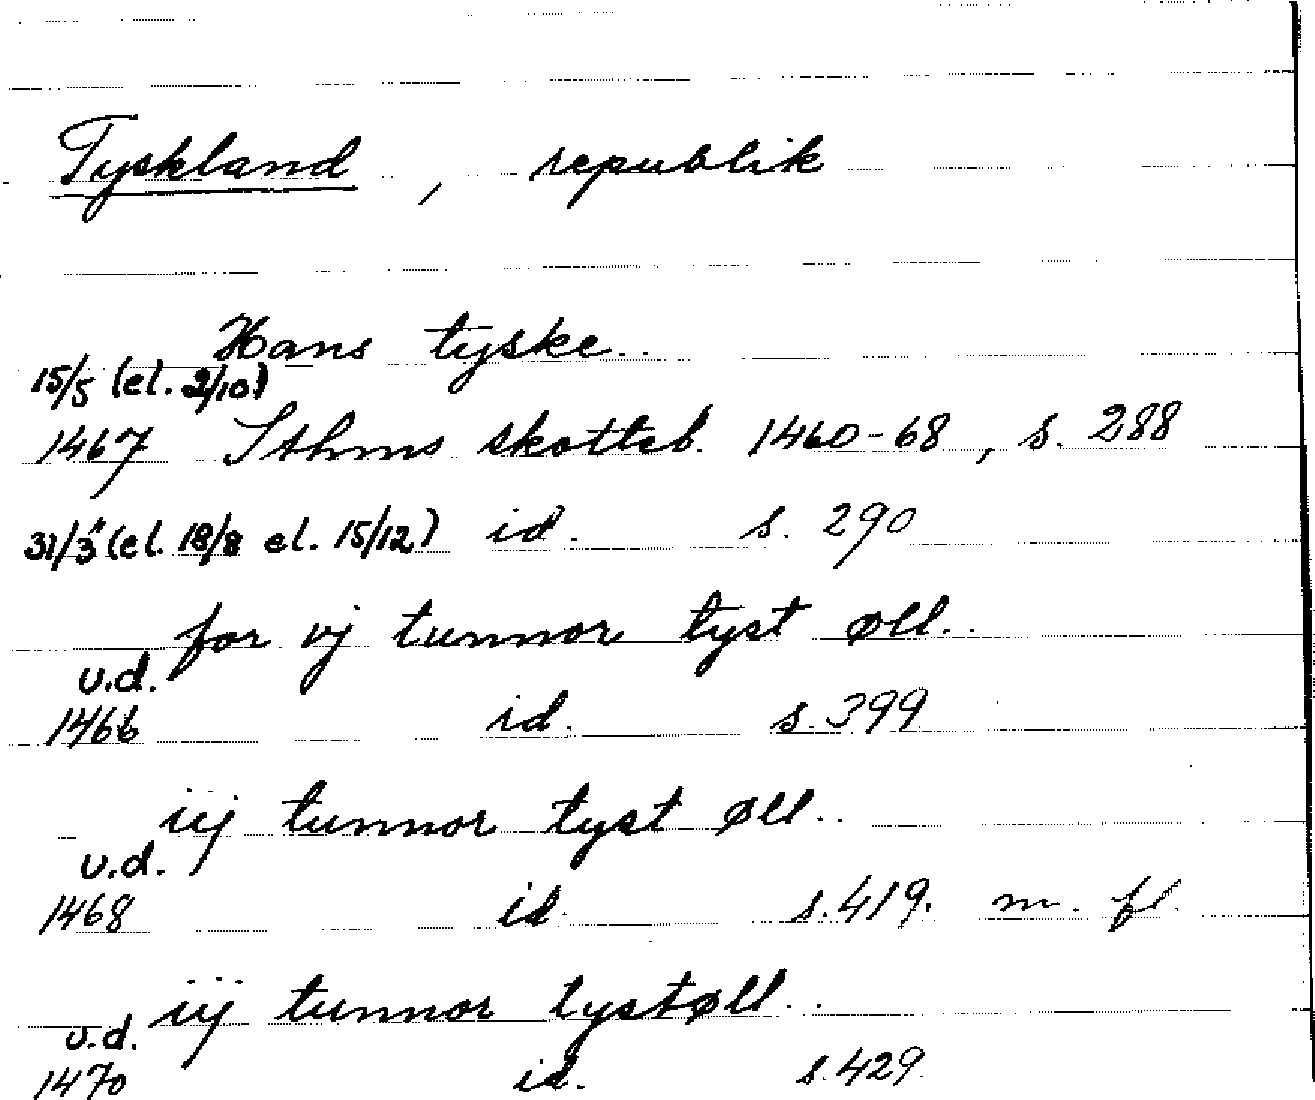 Tyskland, republik
Hans tyske..
15/5 (el. 2/10)
1467 Sthms skotteb. 1460-68, s. 288
31/3 (el. 18/8 el. 15/12) id. s. 290
for vj tunnor tyst øll..
u.d.
1466 id. s. 399
iij tunnor tyst øll..
u.d.
1468 id. s. 419. m. fl.
iij tunnor tystøll..
u.d.
1470 id. s. 429